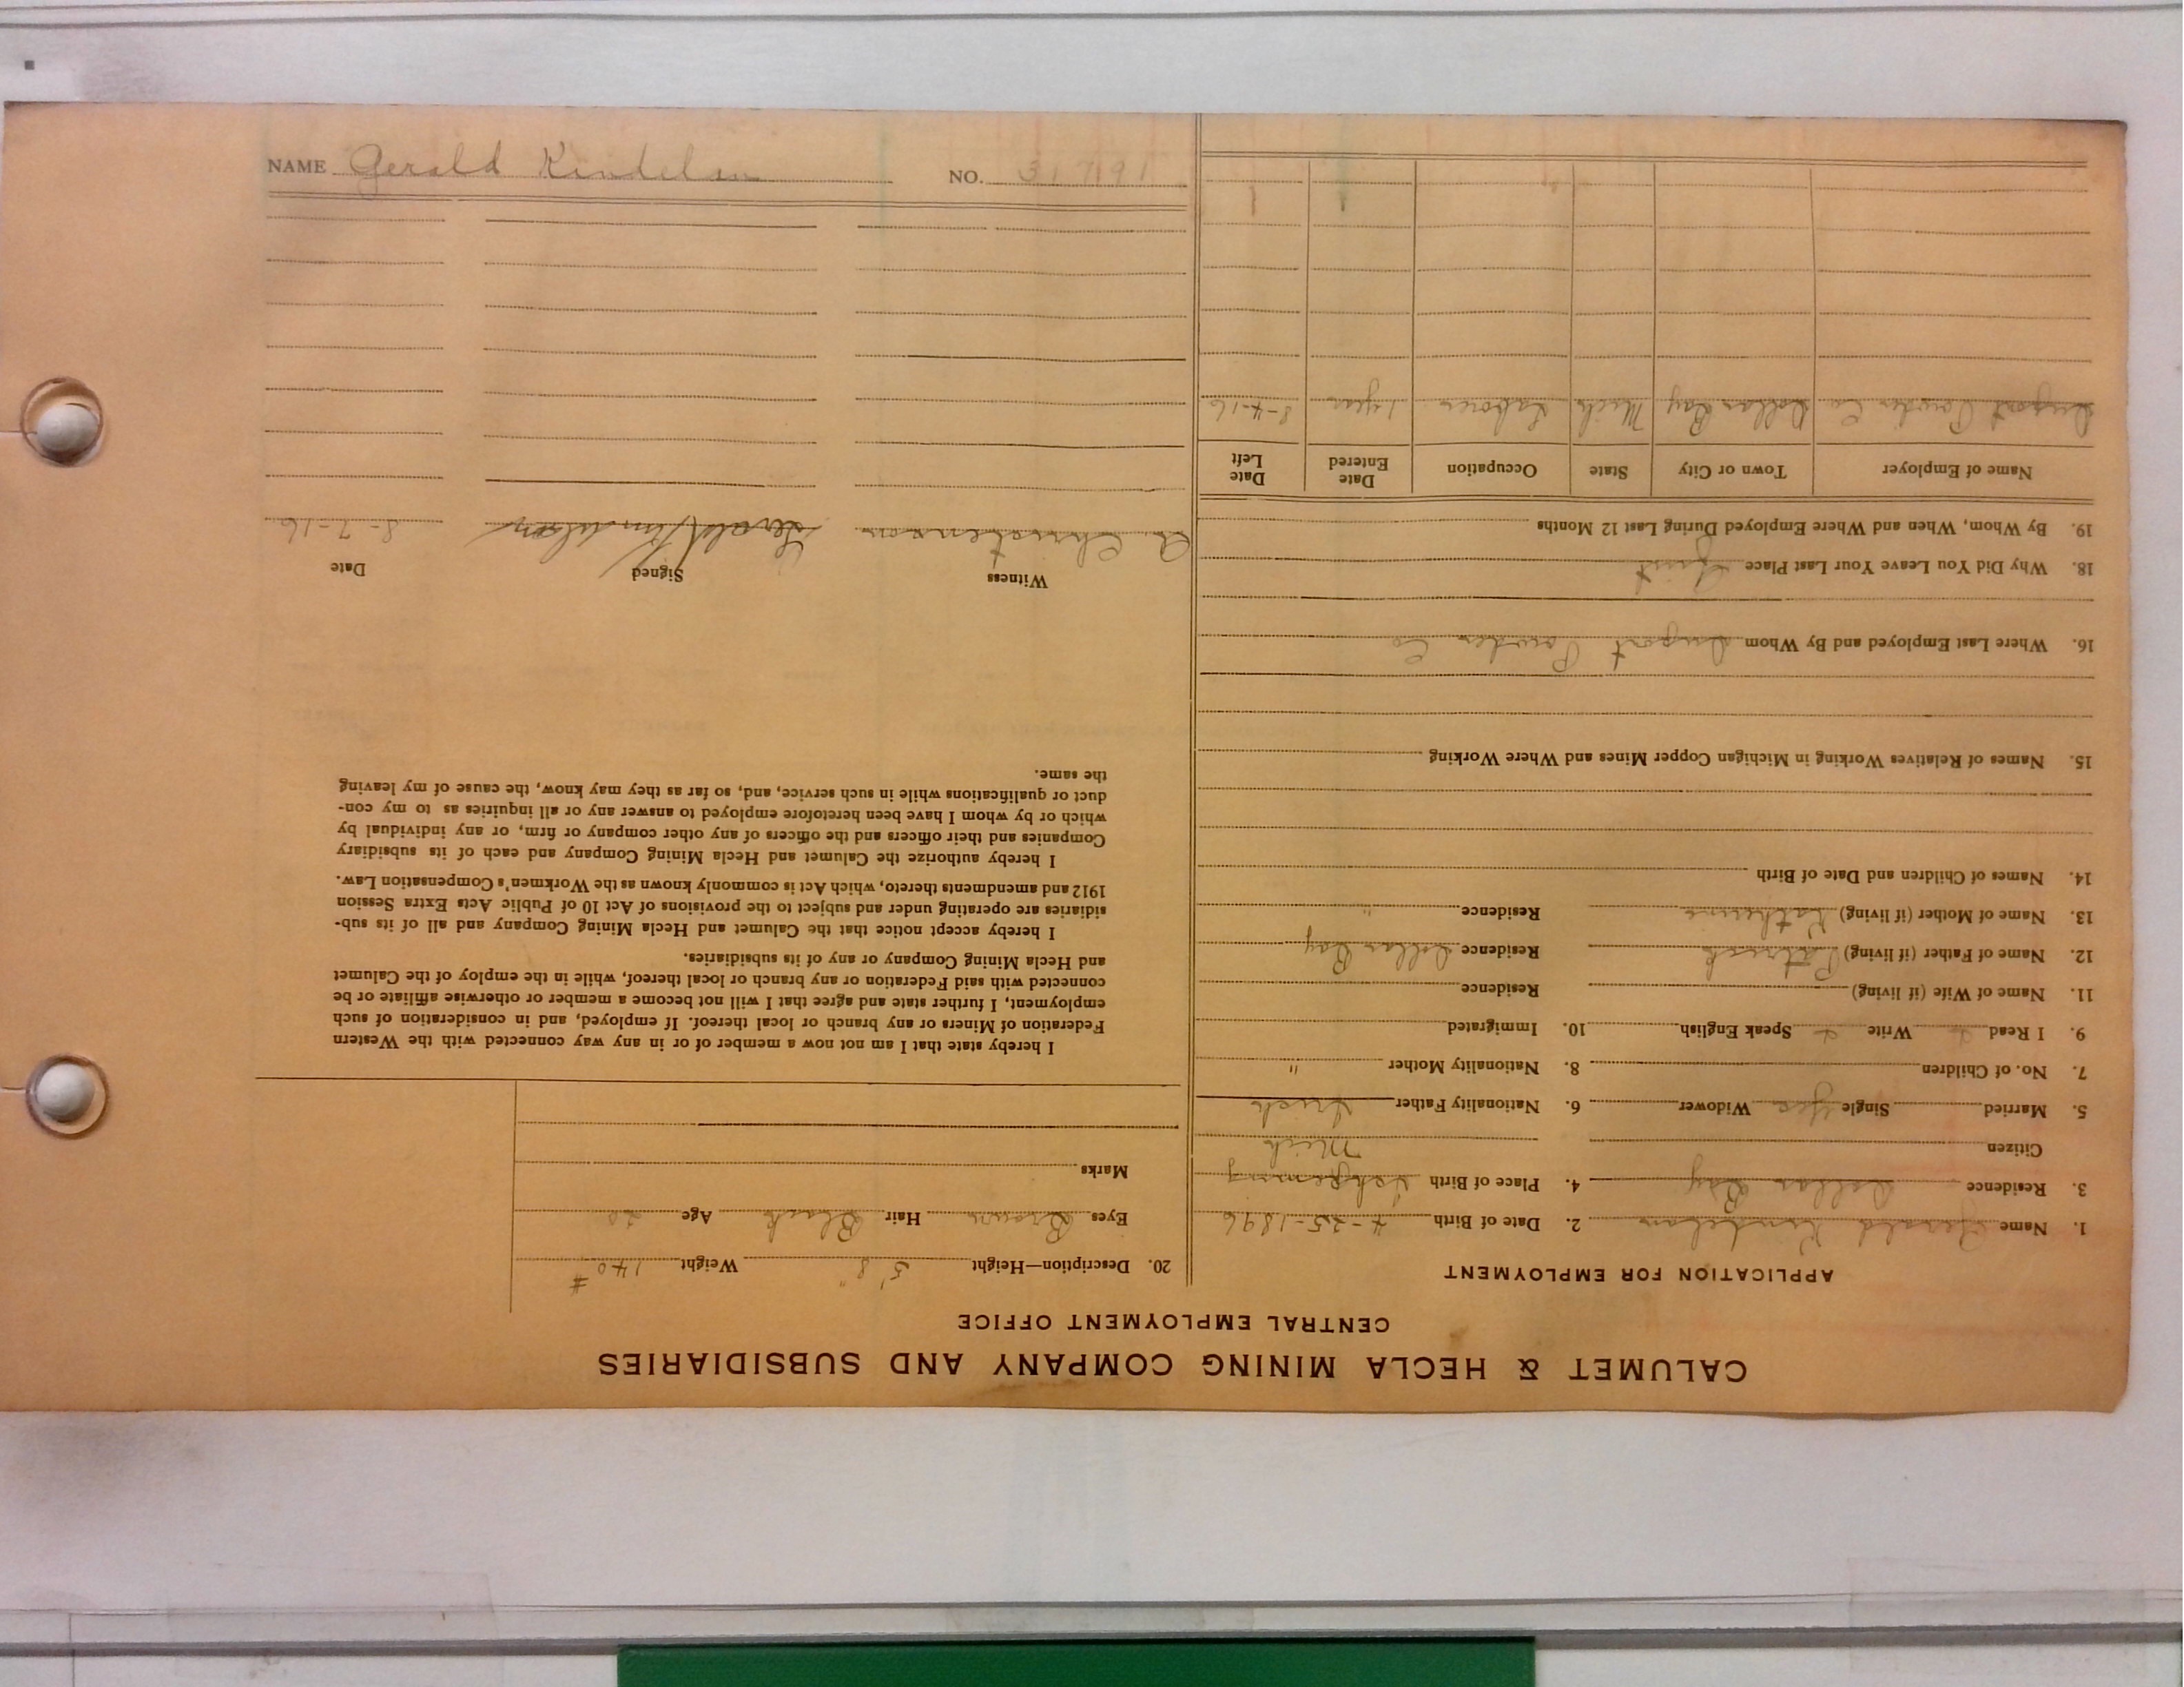 CALUMET & HECLA MINING COMPANY AND SUBSIDIARIES
CENTRAL EMPLOYMENT OFFICE
APPLICATION FOR EMPLOYMENT
1. Name Gerald Kindelan 2. Date of Birth 4-25-1896
3. Residence Dollar Bay 4. Place of Birth Ishpeming
Citizen Mich
5. Married Single Yes Widower 6. Nationality Father Irish
7. No. of Children 8. Nationality Mother "
9. I Read Write Speak English 10. Immigrated
11. Name of Wife (if living) Residence
12. Name of Father (if living) Patrick Residence Dollar Bay
13. Name of Mother (if living) Katherine Residence "
14. Names of Children and Date of Birth
15. Names of Relatives Working in Michigan Copper Mines and Where Working
16. Where Last Employed and By Whom Dupont Powder Co
18. Why Did You Leave Your Last Place Quit
19. By Whom, When and Where Employed During Last 12 Months
Name of Employer Town or City State Occupation Date Entered Date Left
Dupont Powder Co Dollar Bay Mich Laborer 1 year 8-4-16
20. Description—Height 5' 8" Weight 140 #
Eyes Brown Hair Black Age 20
Marks
I hereby state that I am not now a member of or in any way connected with the Western
Federation of Miners or any branch or local thereof. If employed, and in consideration of such
employment, I further state and agree that I will not become a member or otherwise affiliate or be
connected with said Federation or any branch or local thereof, while in the employ of the Calumet
and Hecla Mining Company or any of its subsidiaries.
I hereby accept notice that the Calumet and Hecla Mining Company and all of its sub-
sidiaries are operating under and subject to the provisions of Act 10 of Public Acts Extra Session
1912 and amendments thereto, which Act is commonly known as the Workmen's Compensation Law.
I hereby authorize the Calumet and Hecla Mining Company and each of its subsidiary
Companies and their officers and the officers of any other company or firm, or any individual by
which or by whom I have been heretofore employed to answer any or all inquiries as to my con-
duct or qualifications while in such service, and, so far as they may know, the cause of my leaving
the same.
Witness Signed Date
A. Christensen Gerald Kindelan 8-7-16
NAME Gerald Kindelan NO. 31791